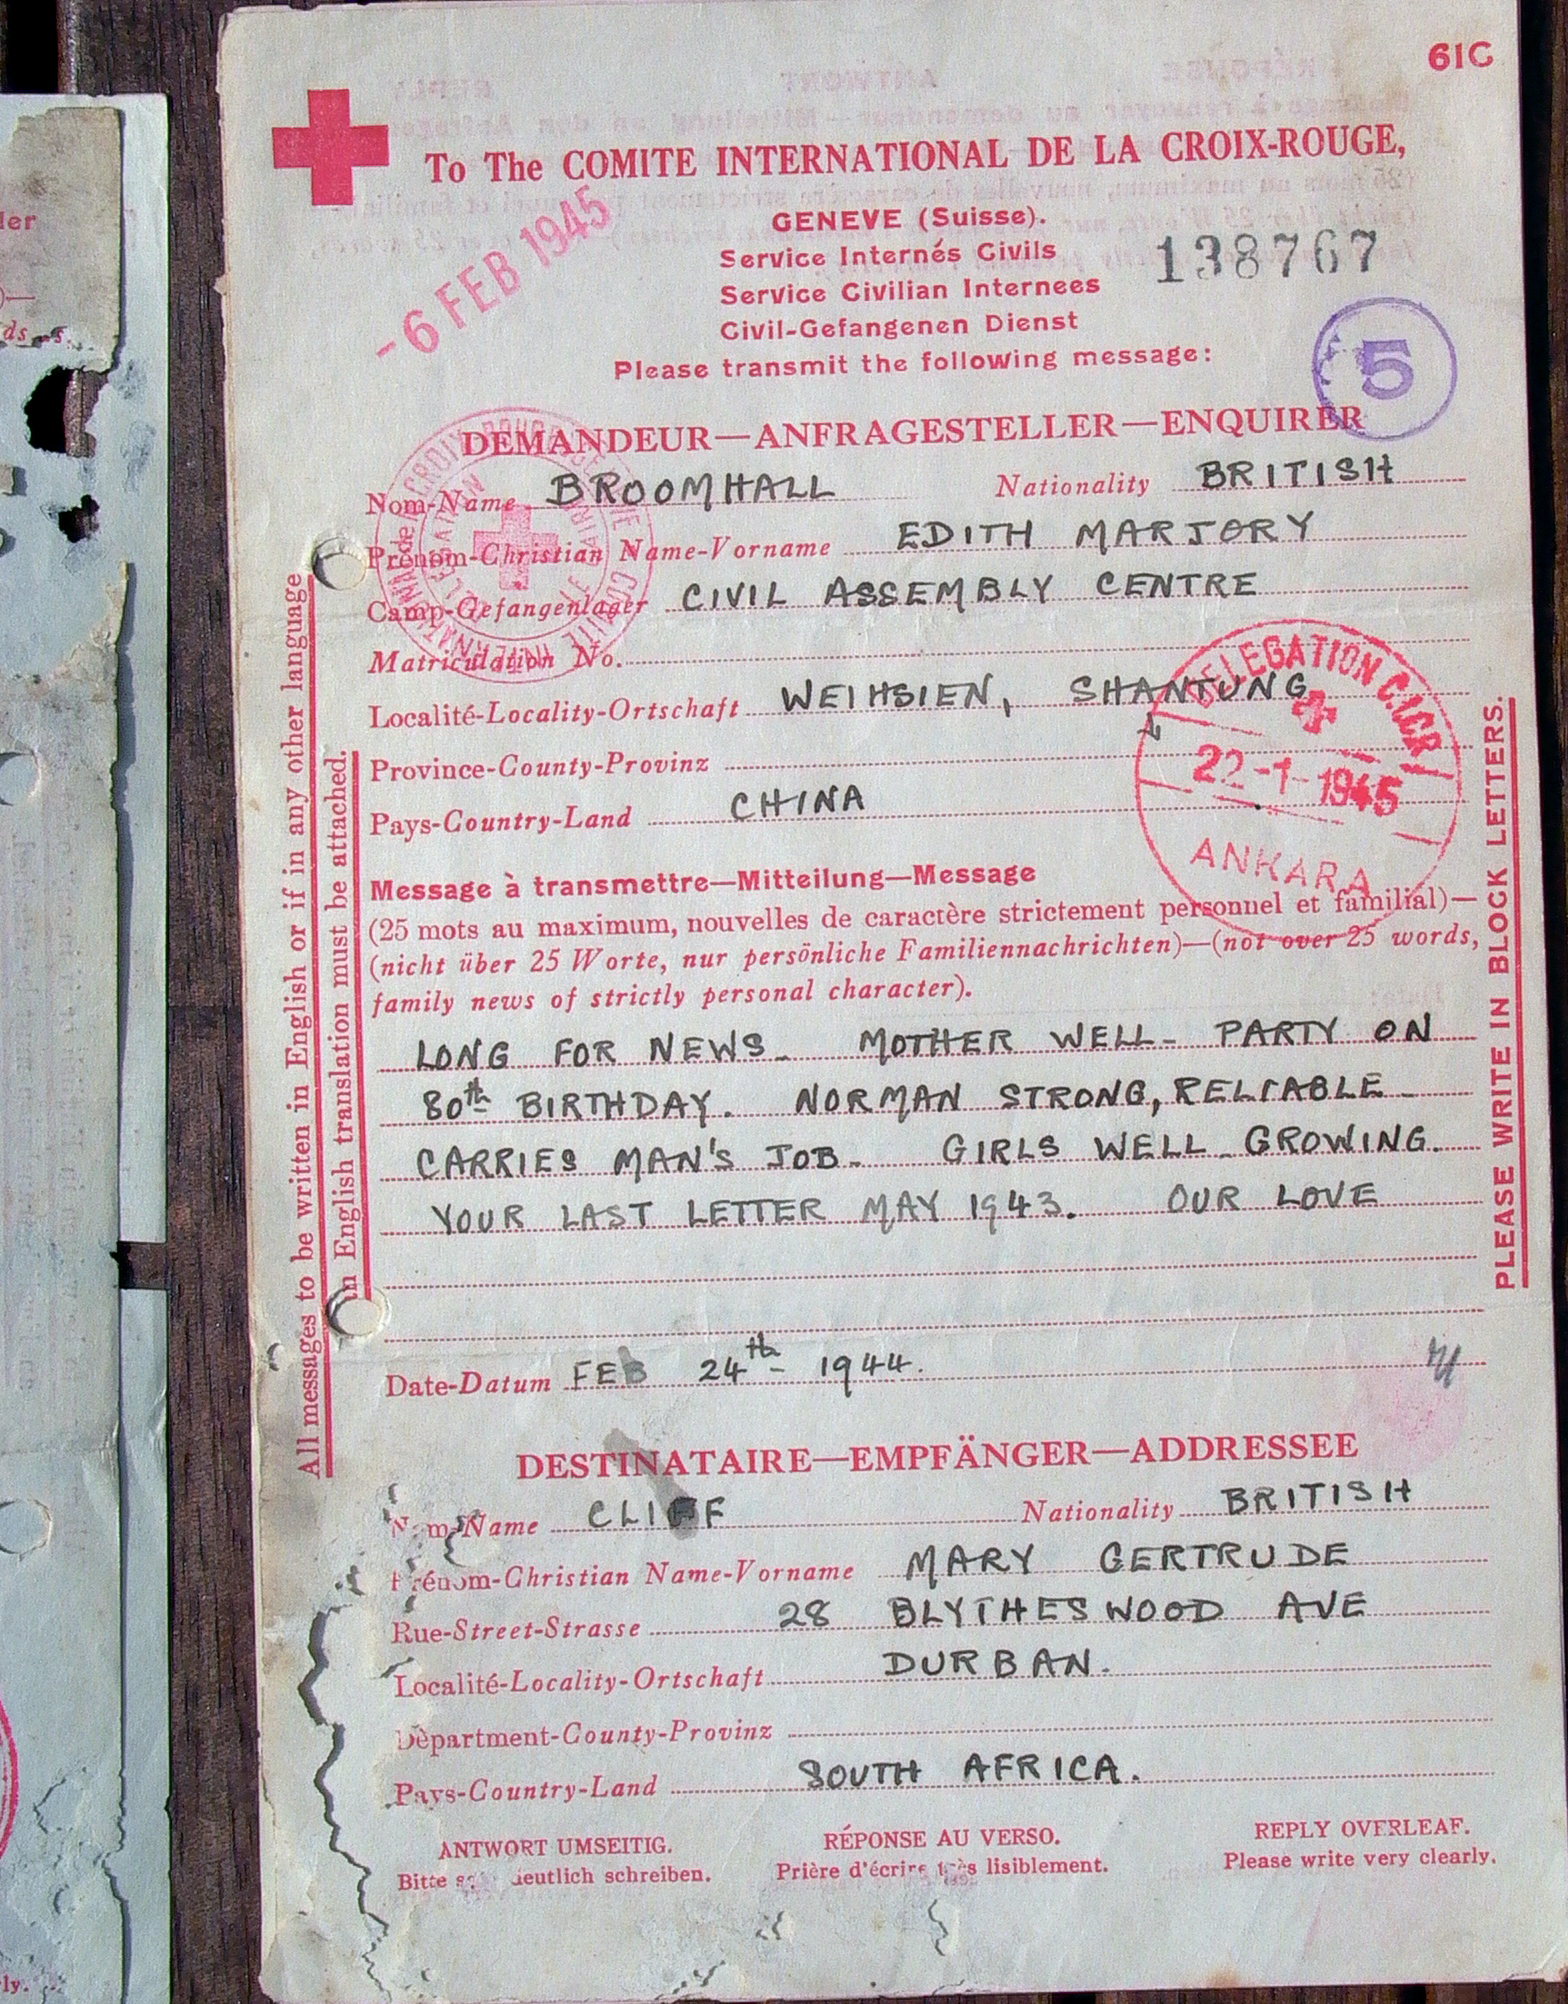 61C
To The COMITE INTERNATIONAL DE LA CROIX-ROUGE,
GENEVE (Suisse).
Service Internés Civils
138767
Service Civilian Internees
Civil-Gefangenen Dienst
-6 FEB 1945
Please transmit the following message:
5
DEMANDEUR—ANFRAGESTELLER—ENQUIRER
Nom-Name BROOMHALL Nationality BRITISH
Prénom-Christian Name-Vorname EDITH MARJORY
Camp-Gefangenlager CIVIL ASSEMBLY CENTRE
Matriculation No.
Localité-Locality-Ortschaft WEIHSIEN, SHANTUNG
Province-County-Provinz
Pays-Country-Land CHINA
DELEGATION C.I.C.R.
22-1-1945
ANKARA
Message à transmettre—Mitteilung—Message
(25 mots au maximum, nouvelles de caractère strictement personnel et familial)—
(nicht über 25 Worte, nur persönliche Familiennachrichten)—(not over 25 words,
family news of strictly personal character).
LONG FOR NEWS. MOTHER WELL. PARTY ON
80th BIRTHDAY. NORMAN STRONG, RELIABLE
CARRIES MAN'S JOB. GIRLS WELL GROWING.
YOUR LAST LETTER MAY 1943. OUR LOVE
Date-Datum FEB 24th 1944.
DESTINATAIRE—EMPFÄNGER—ADDRESSEE
Nom-Name CLIFF Nationality BRITISH
Prénom-Christian Name-Vorname MARY GERTRUDE
Rue-Street-Strasse 28 BLYTHESWOOD AVE
Localité-Locality-Ortschaft DURBAN.
Dèpartment-County-Provinz
Pays-Country-Land SOUTH AFRICA.
ANTWORT UMSEITIG. RÉPONSE AU VERSO. REPLY OVERLEAF.
Bitte deutlich schreiben. Prière d'écrire très lisiblement. Please write very clearly.
All messages to be written in English or if in any other language
an English translation must be attached.
PLEASE WRITE IN BLOCK LETTERS.